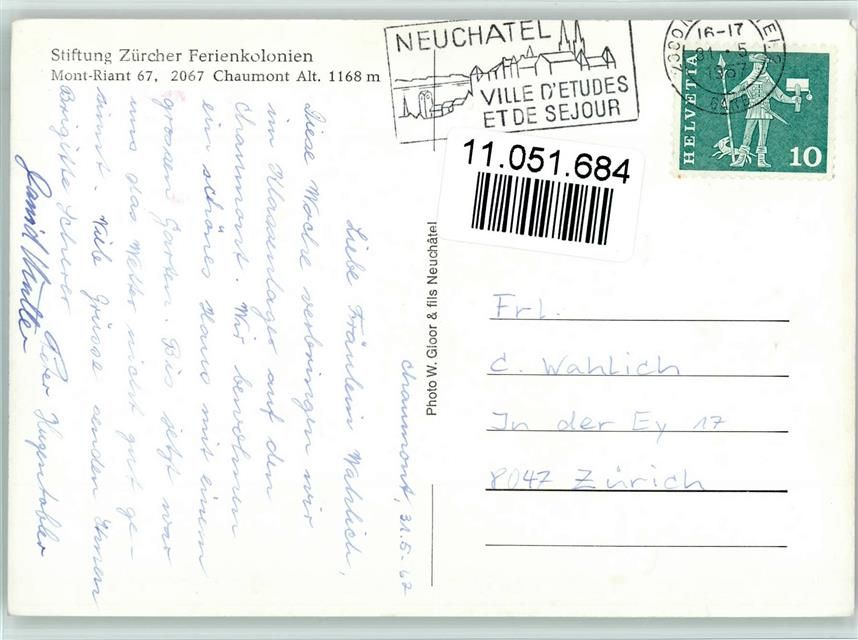 Stiftung Zürcher Ferienkolonien
Mont-Riant 67, 2067 Chaumont Alt. 1168 m
NEUCHATEL
VILLE D'ETUDES
ET DE SEJOUR
16-17
31.-5.
1967
HELVETIA
10
11.051.684
Photo W. Gloor & fils Neuchâtel
Chaumont, 31.5.67
Liebe Fräulein Wahlich,
Diese Woche verbringen wir
im Klassenlager auf dem
Chaumont. Wir bewohnen
ein schönes Haus mit einem
grossen Garten. Bis jetzt war
uns das Wetter nicht gut ge-
sinnt. Viele Grüsse senden Ihnen
Brigitte Scherer
Peter Hugentobler
Frl.
C. Wahlich
In der Ey 17
8047 Zürich